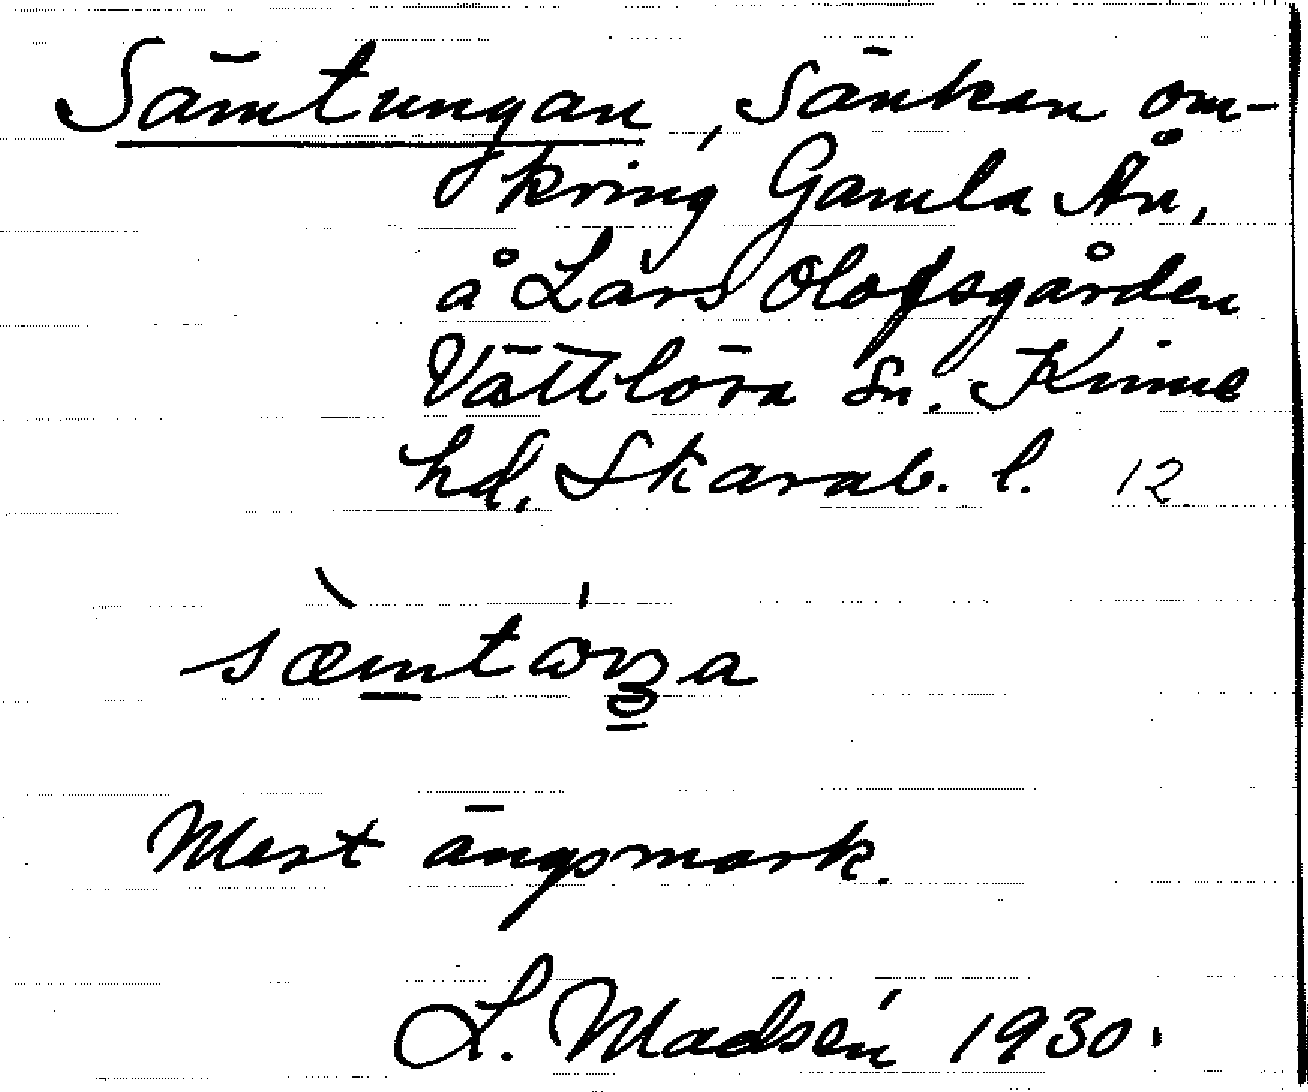 Sämtungan, Sänkan om-
kring Gamla Ån,
å Lars Olofsgården
Vättlösa sn. Kinne
hd. Skarab. l. 12
Mest ängsmark.
L. Madsén 1930.